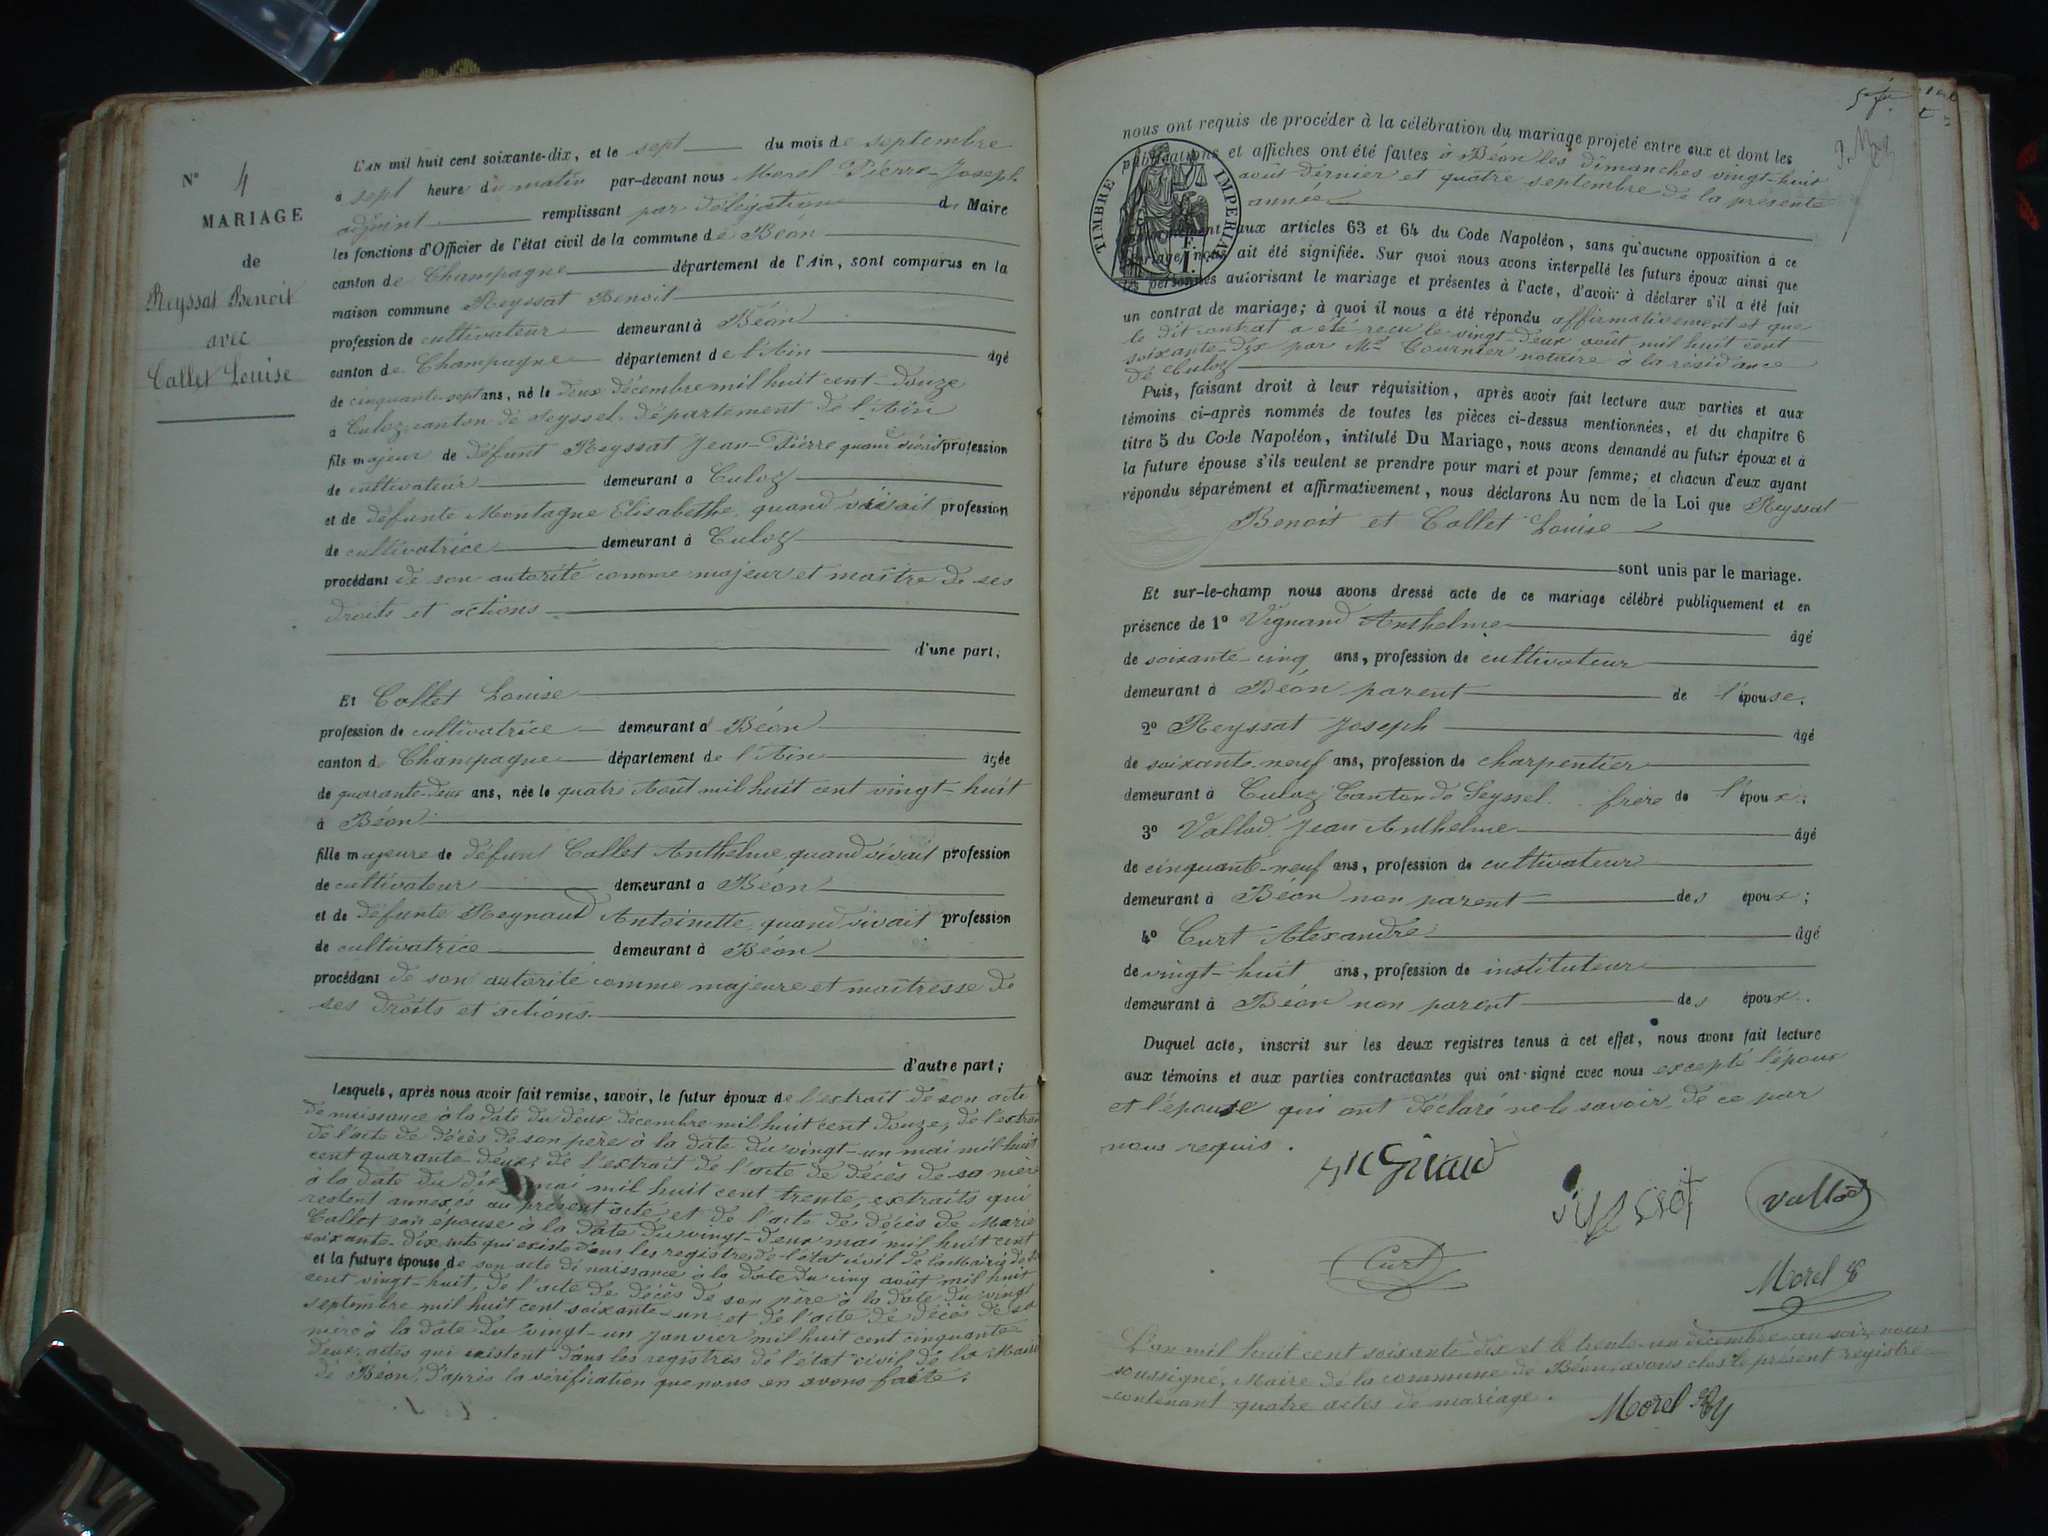 N° 4
MARIAGE
de
Reyssat Benoit
avec
Callet Louise
L'AN mil huit cent soixante-dix, et le sept du mois de septembre
à sept heure du matin par-devant nous Morel Pierre-Joseph
adjoint remplissant par délégation du Maire
les fonctions d'Officier de l'état civil de la commune de Béon
canton de Champagne département de l'Ain, sont comparus en la
maison commune Reyssat Benoit
profession de cultivateur demeurant à Béon
canton de Champagne département de l'Ain âgé
de cinquante-sept ans, né le deux décembre mil huit cent-douze
à Culoz, canton de Seyssel, département de l'Ain
fils majeur de défunt Reyssat Jean-Pierre quand vivait profession
de cultivateur demeurant à Culoz
et de défunte Montagne Elisabethe, quand vivait profession
de cultivatrice demeurant à Culoz
procédant de son autorité comme majeur et maître de ses
droits et actions
d'une part;
Et Callet Louise
profession de cultivatrice demeurant à Béon
canton de Champagne département de l'Ain âgée
de quarante-deux ans, née le quatre Août mil huit cent vingt-huit
à Béon
fille majeure de défunt Callet Anthelme, quand vivait profession
de cultivateur demeurant à Béon
et de défunte Reynaud Antoinette, quand vivait profession
de cultivatrice demeurant à Béon
procédant de son autorité comme majeure et maîtresse de
ses droits et actions
d'autre part;
Lesquels, après nous avoir fait remise, savoir, le futur époux de l'extrait de son acte
de naissance à la date du deux décembre mil huit cent douze, de l'extrait
de l'acte de décès de son père à la date du vingt-un mai mil huit
cent quarante-deux, de l'extrait de l'acte de décès de sa mère
à la date du dix mai mil huit cent trente, extraits qui
restent annexés au présent acte, et de l'acte de décès de Marie
Callet son épouse à la date du vingt-deux mai mil huit cent
soixante-dix, acte qui existe dans les registres de l'état civil de la Mairie de
et la future épouse de son acte de naissance à la date du cinq août mil huit
cent vingt-huit, de l'acte de décès de son père à la date du vingt
septembre mil huit cent soixante-un, et de l'acte de décès de sa
mère à la date du vingt-un Janvier mil huit cent cinquante
deux, actes qui existent dans les registres de l'état civil de la Mairie
de Béon, d'après la vérification que nous en avons faite.
nous ont requis de procéder à la célébration du mariage projeté entre eux et dont les
publications et affiches ont été faites à Béon les dimanches vingt-huit
août dernier et quatre septembre de la présente
année
TIMBRE IMPERIAL
aux articles 63 et 64 du Code Napoléon, sans qu'aucune opposition à ce
mariage nous ait été signifiée. Sur quoi nous avons interpellé les futurs époux ainsi que
les personnes autorisant le mariage et présentes à l'acte, d'avoir à déclarer s'il a été fait
un contrat de mariage; à quoi il nous a été répondu affirmativement et que
le dit contrat a été reçu le vingt-deux août mil huit cent
soixante-dix par Me Tournier notaire à la résidance
de Culoz
Puis, faisant droit à leur réquisition, après avoir fait lecture aux parties et aux
témoins ci-après nommés de toutes les pièces ci-dessus mentionnées, et du chapitre 6
titre 5 du Code Napoléon, intitulé Du Mariage, nous avons demandé au futur époux et à
la future épouse s'ils veulent se prendre pour mari et pour femme; et chacun d'eux ayant
répondu séparément et affirmativement, nous déclarons Au nom de la Loi que Reyssat
Benoit et Callet Louise
sont unis par le mariage.
Et sur-le-champ nous avons dressé acte de ce mariage célébré publiquement et en
présence de 1° Vignand Anthelme âgé
de soixante-cinq ans, profession de cultivateur
demeurant à Béon parent de l'épouse.
2° Reyssat Joseph âgé
de soixante-neuf ans, profession de charpentier
demeurant à Culoz, Canton de Seyssel. frère de l'époux;
3° Vallod Jean Anthelme âgé
de cinquante-neuf ans, profession de cultivateur
demeurant à Béon non parent des époux;
4° Curt Alexandre âgé
de vingt-huit ans, profession de instituteur
demeurant à Béon non parent des époux.
Duquel acte, inscrit sur les deux registres tenus à cet effet, nous avons fait lecture
aux témoins et aux parties contractantes qui ont signé avec nous excepté l'époux
et l'épouse qui ont déclaré ne le savoir de ce par
nous requis.
Vallod
Curt
Morel
L'an mil huit cent soixante-dix et le trente-un décembre au soir, nous
soussigné, Maire de la commune de Béon, avons clos le présent registre
contenant quatre actes de mariage.
Morel